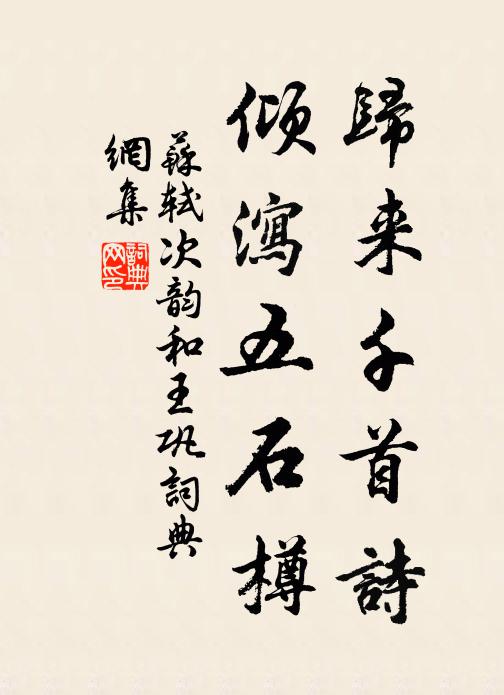 歸来千首詩
傾瀉五石樽
蘇軾次韵和王巩詞典
網集
詞典網印